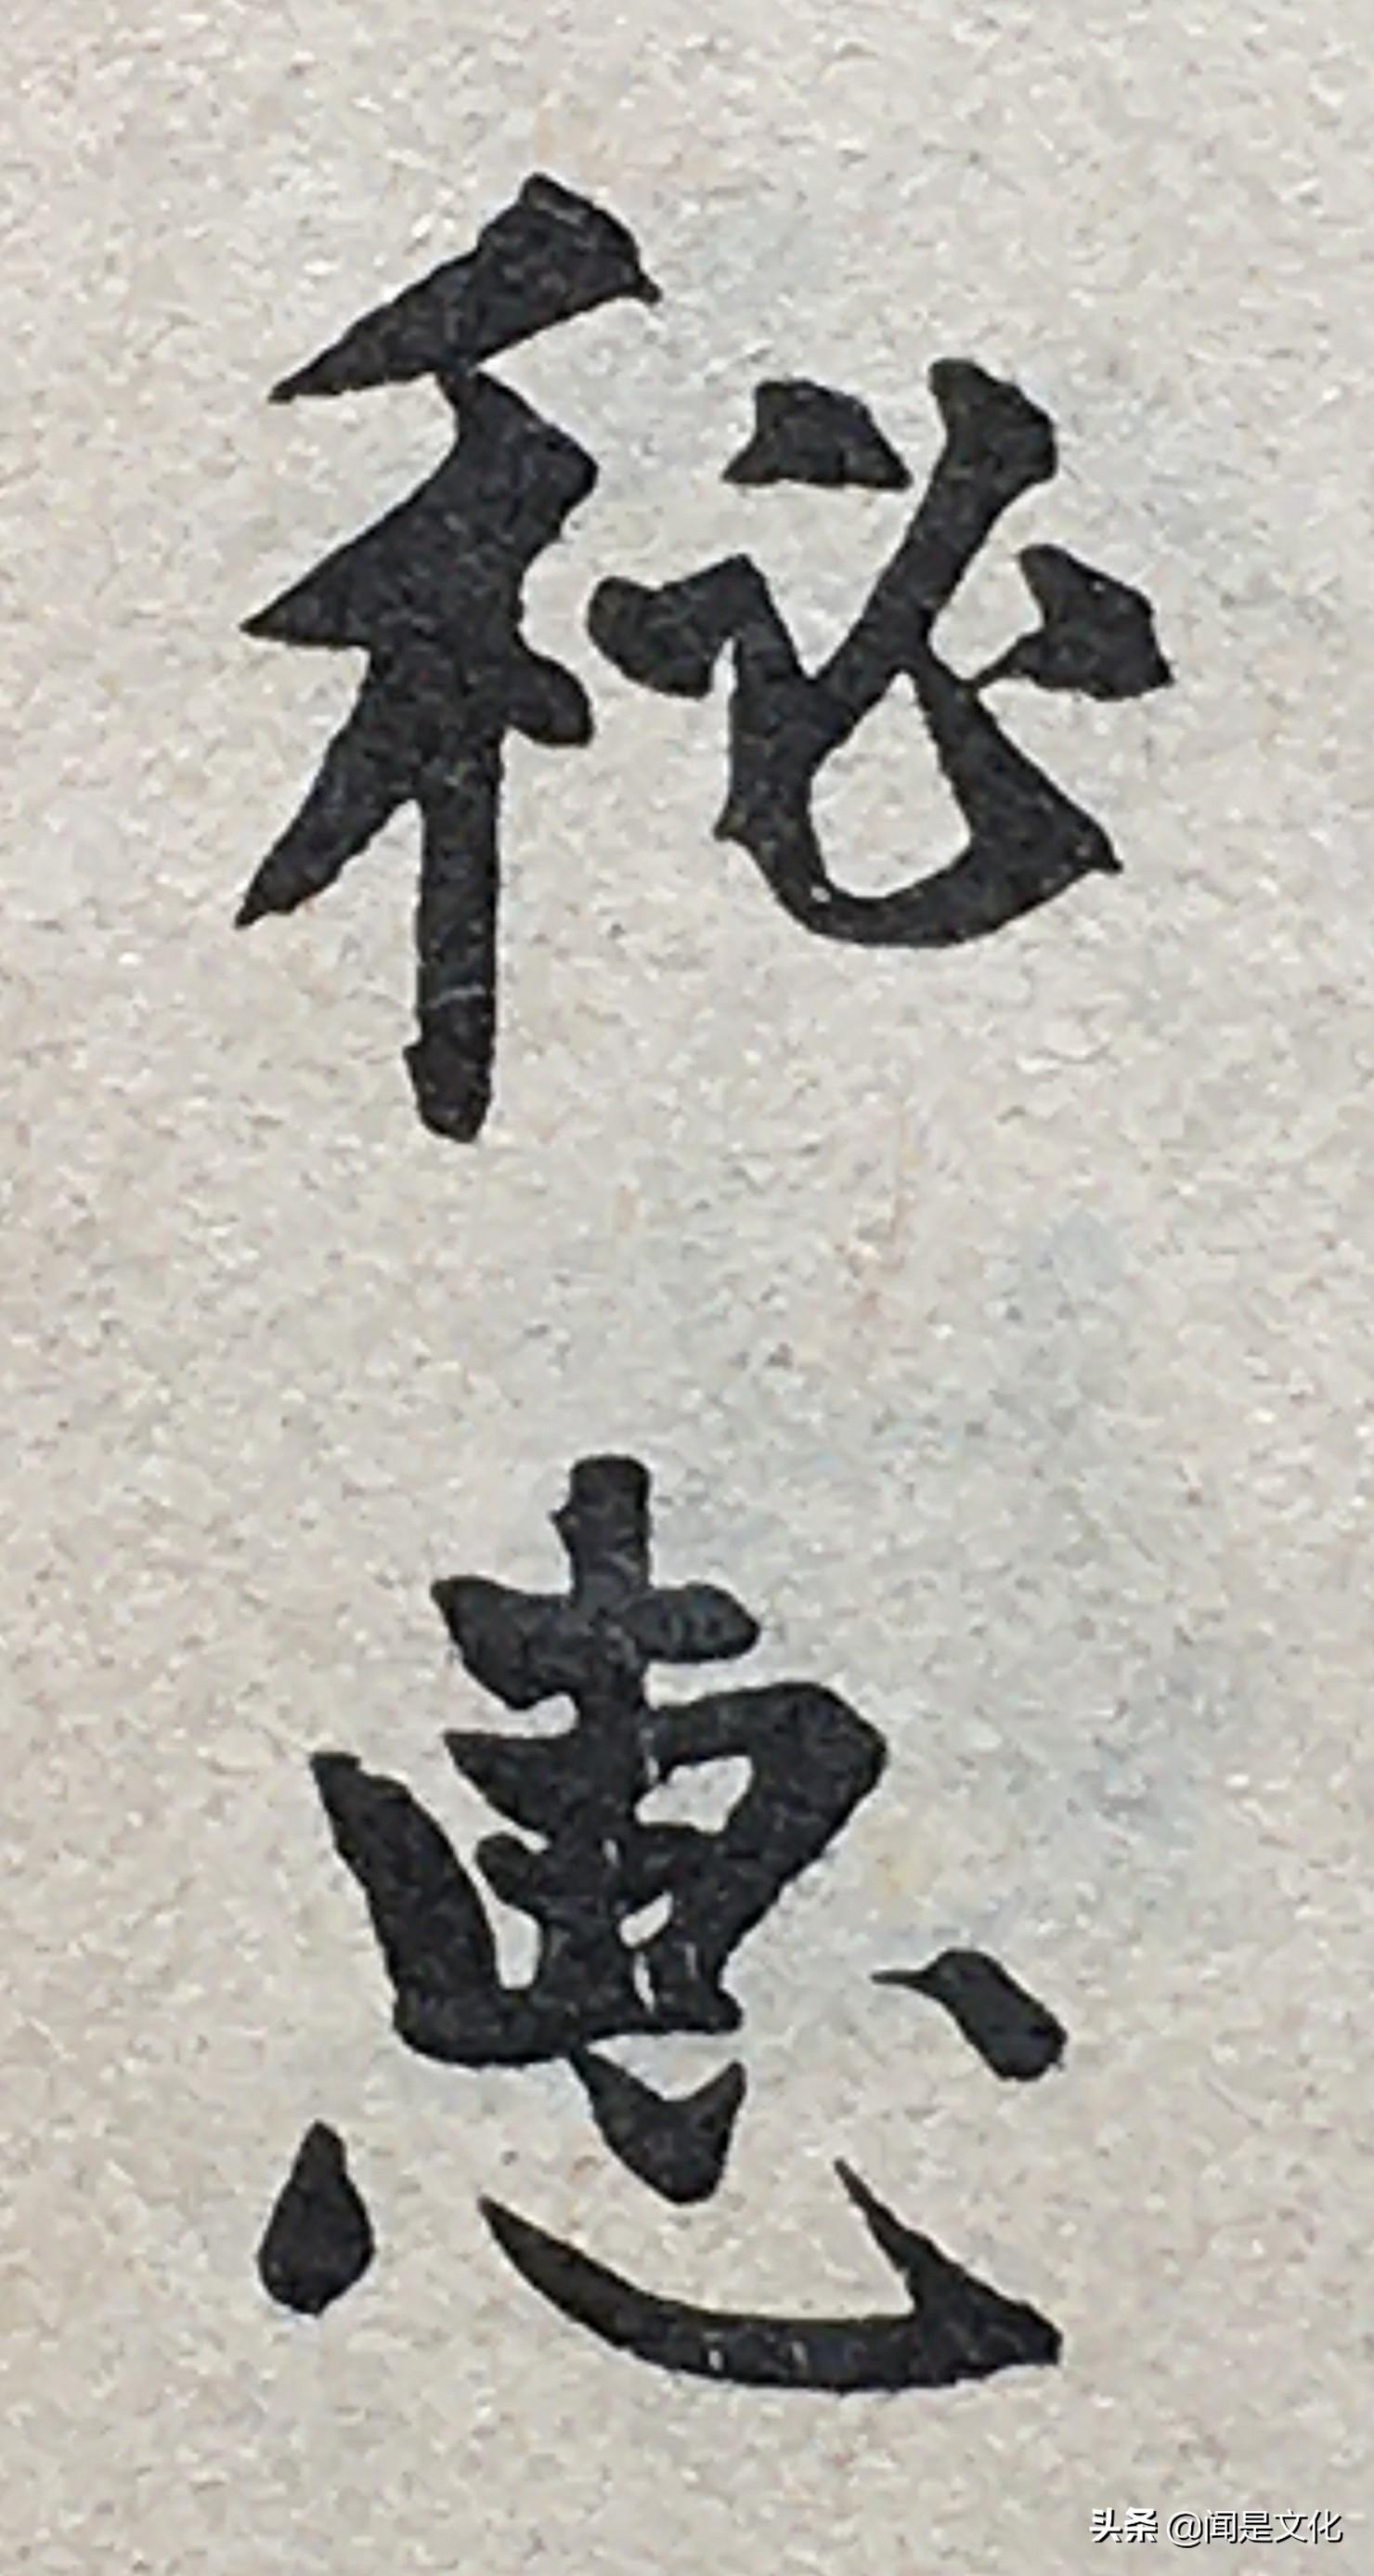 秘
惠
头条 @闻是文化